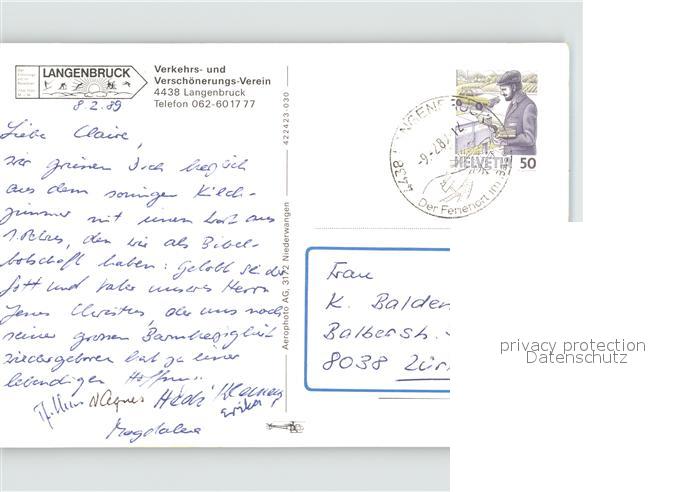 LANGENBRUCK
Verkehrs- und
Verschönerungs-Verein
4438 Langenbruck
Telefon 062-601777
8.2.89
Liebe Claire,
wir grüssen Dich herzlich
aus dem sonnigen Kilch-
zimmer mit einem Wort aus
1. Petrus, den wir als Bibel-
botschaft haben: Gelobt sei der
Gott und Vater unseres Herrn
Jesus Christus, der uns nach
seiner grossen Barmherzigkeit
wiedergeboren hat zu einer
lebendigen Hoffnung
Agnes Hedi
Erika
Magdalena
422423-030
Aerophoto AG, 3172 Niederwangen
4438 LANGENBRUCK
-9.-2.89.12
Der Ferienort im
HELVETIA 50
Frau
K. Balden
Balberstr.
8038 Züri
privacy protection
Datenschutz